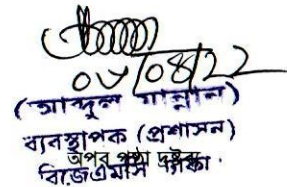 ০৮/০৪/২২
(আব্দুল মান্নান)
ব্যবস্থাপক (প্রশাসন)
অপর পৃষ্ঠা দ্রষ্টব্য
বিজেএমসি, ঢাকা